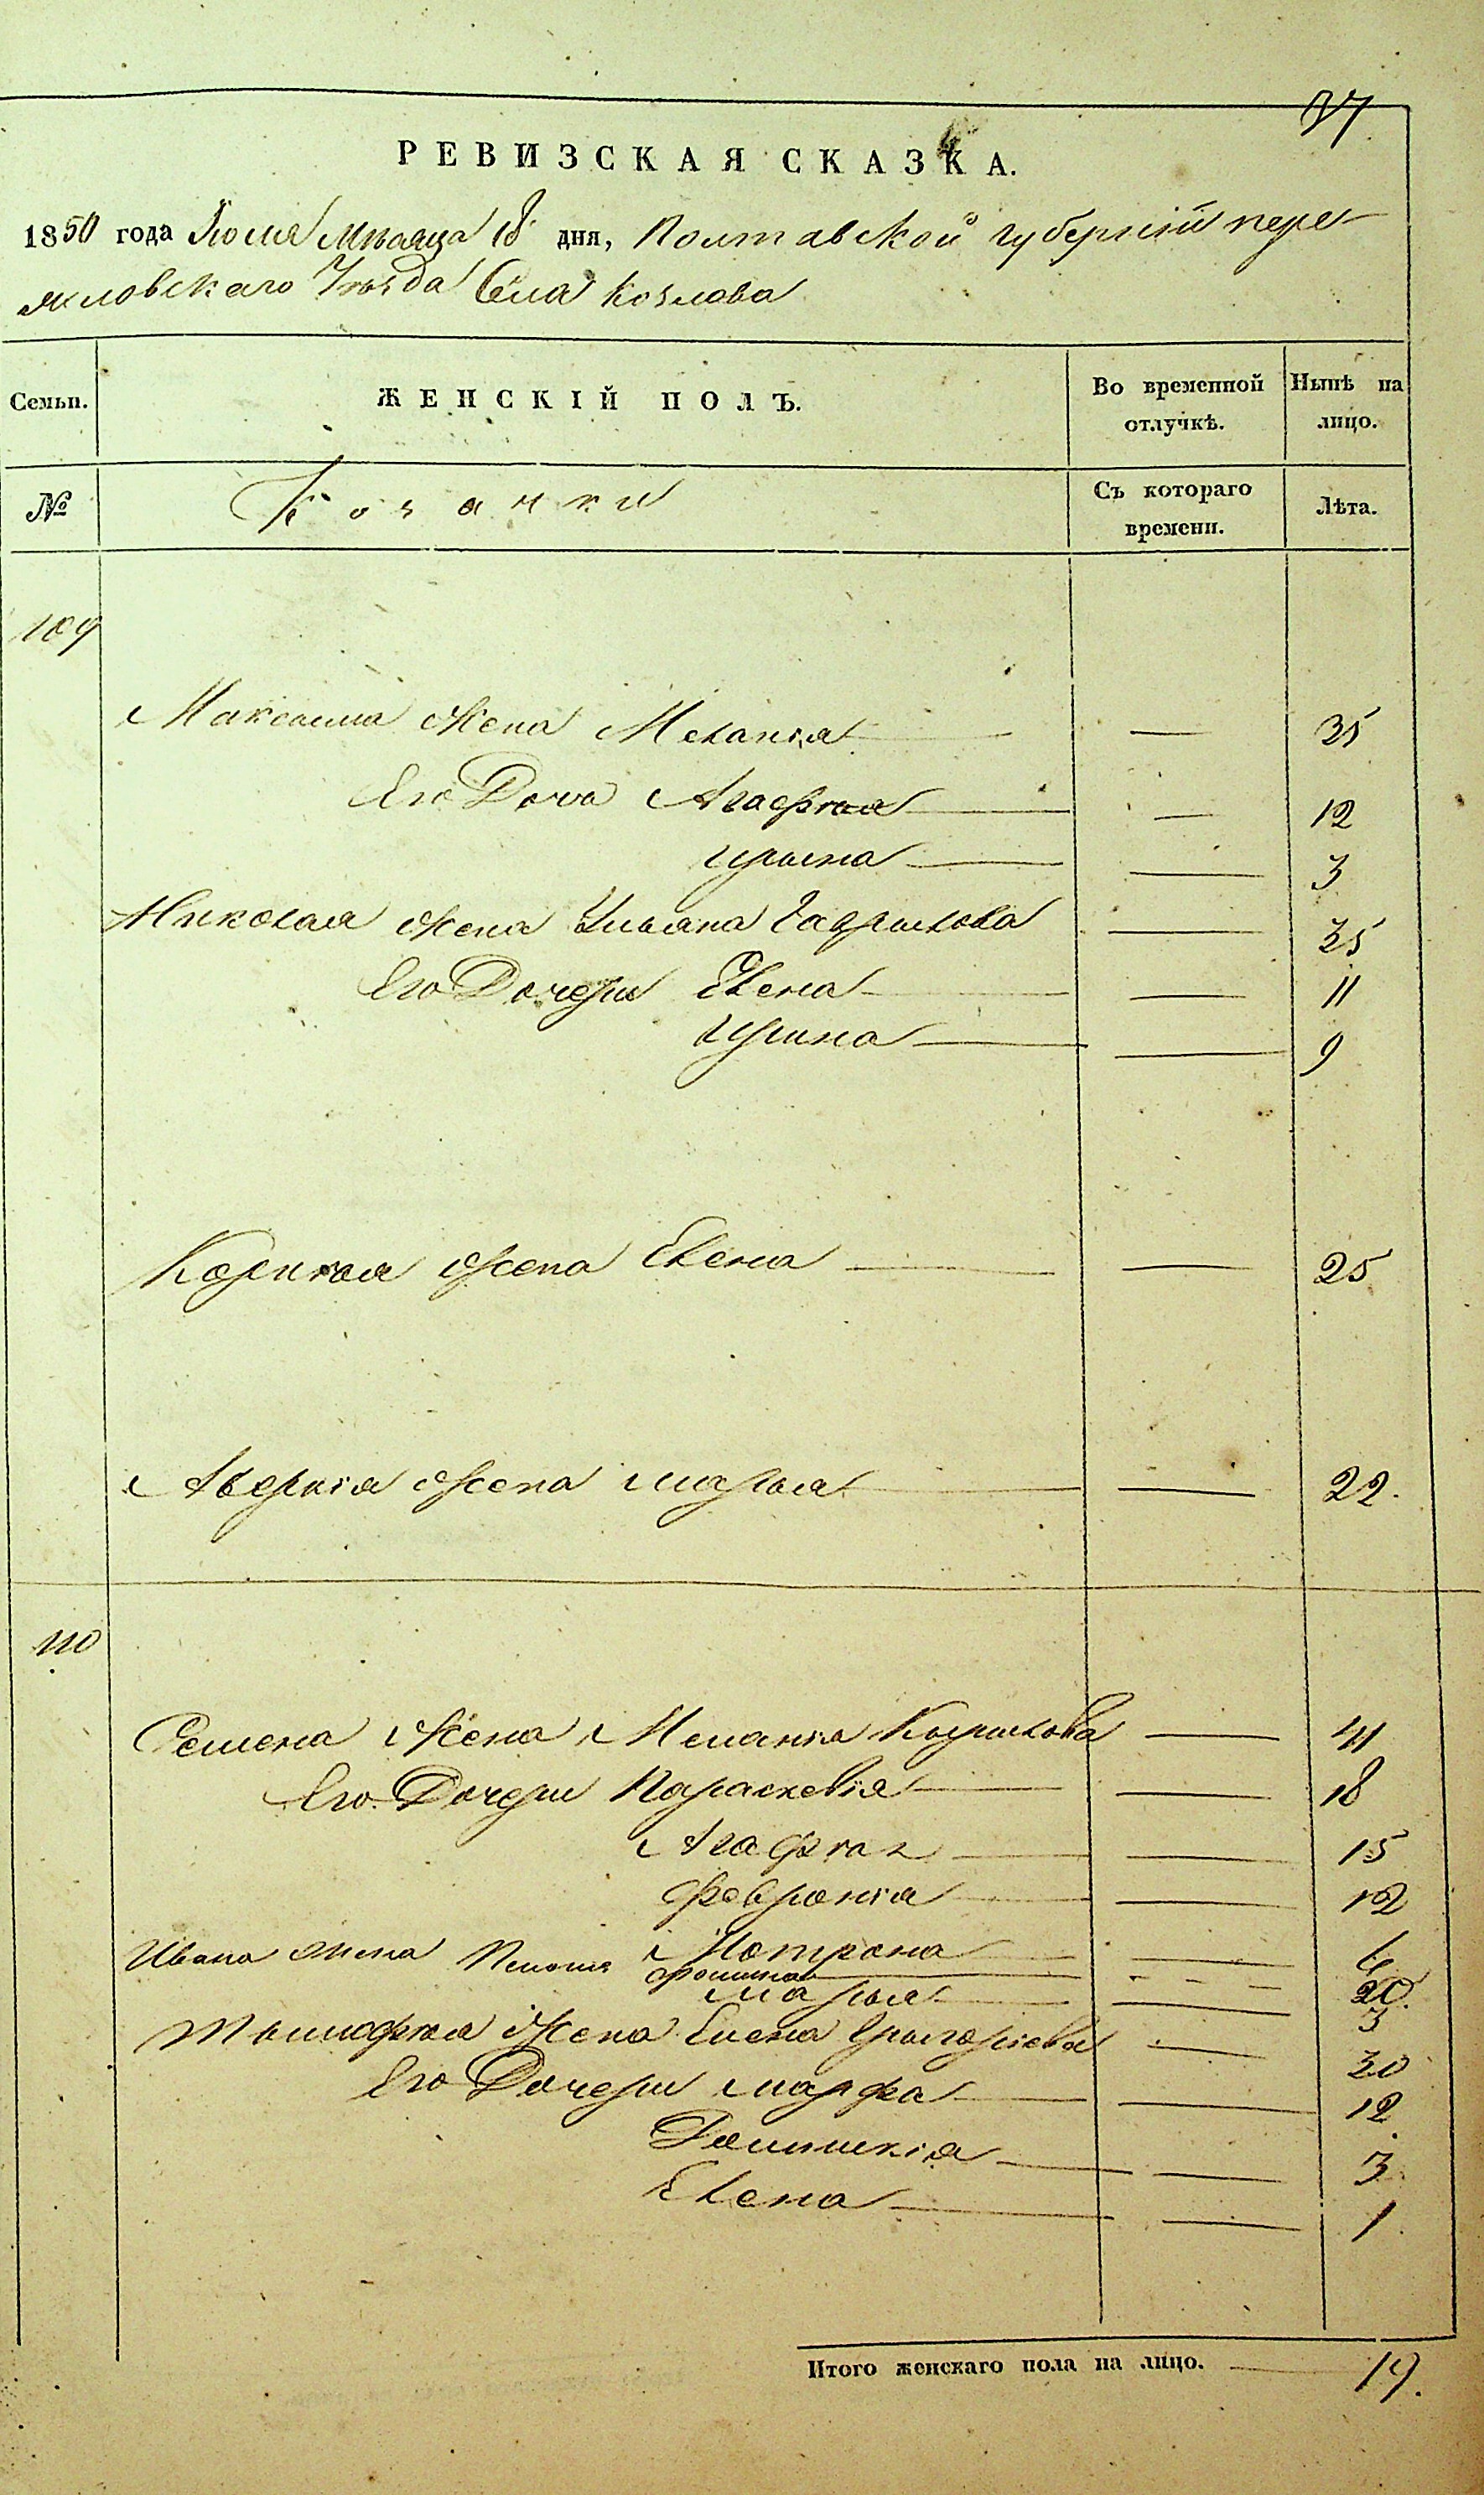 37
РЕВИЗСКАЯ СКАЗКА.
1850 года Июля Мѣсяца 18 дня, Полтавской губернiи пере-
яславскаго Уѣзда Села Козлова
Семьи.
ЖЕНСКІЙ ПОЛЪ.
Во временной отлучкѣ.
Нынѣ на лицо.
№
Козачки
Съ котораго времени.
Лѣта.
109
Максима Жена Меланiя — — 35
Его Дочь Агафiя — — 12
Ирына — — 3
Николая Жена Ульяна Гаврылова — 35
Его Дочери Елена — — 11
Ирина — — 9
Жена Елена — — 25
Аверкiя Жена Марья — — 22.
110
Семена Жена Меланiя Кырылова — 41
Его Дочери Параскевiя — — 18
Агафiя — — 15
Феврониiя — — 12
Мотрона — — 6
Ивана Жена Пелагея Фомина — 20.
Марья — — 3
Тымофiя Жена Елена Грыгорiева — 30
Его Дочери Марфа — — 12
— — 3
Елена — — 1
Итого женскаго пола на лицо. — 19.